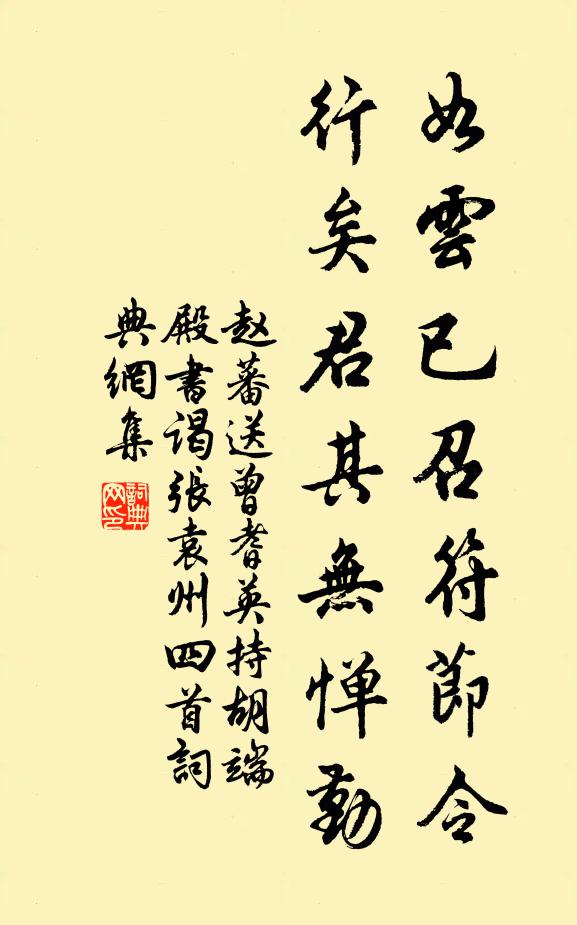 如雲已召符節令
行矣君其無憚勤
赵蕃送曾耆英持胡端
殿書谒張袁州四首詞
典網集
詞典
网印